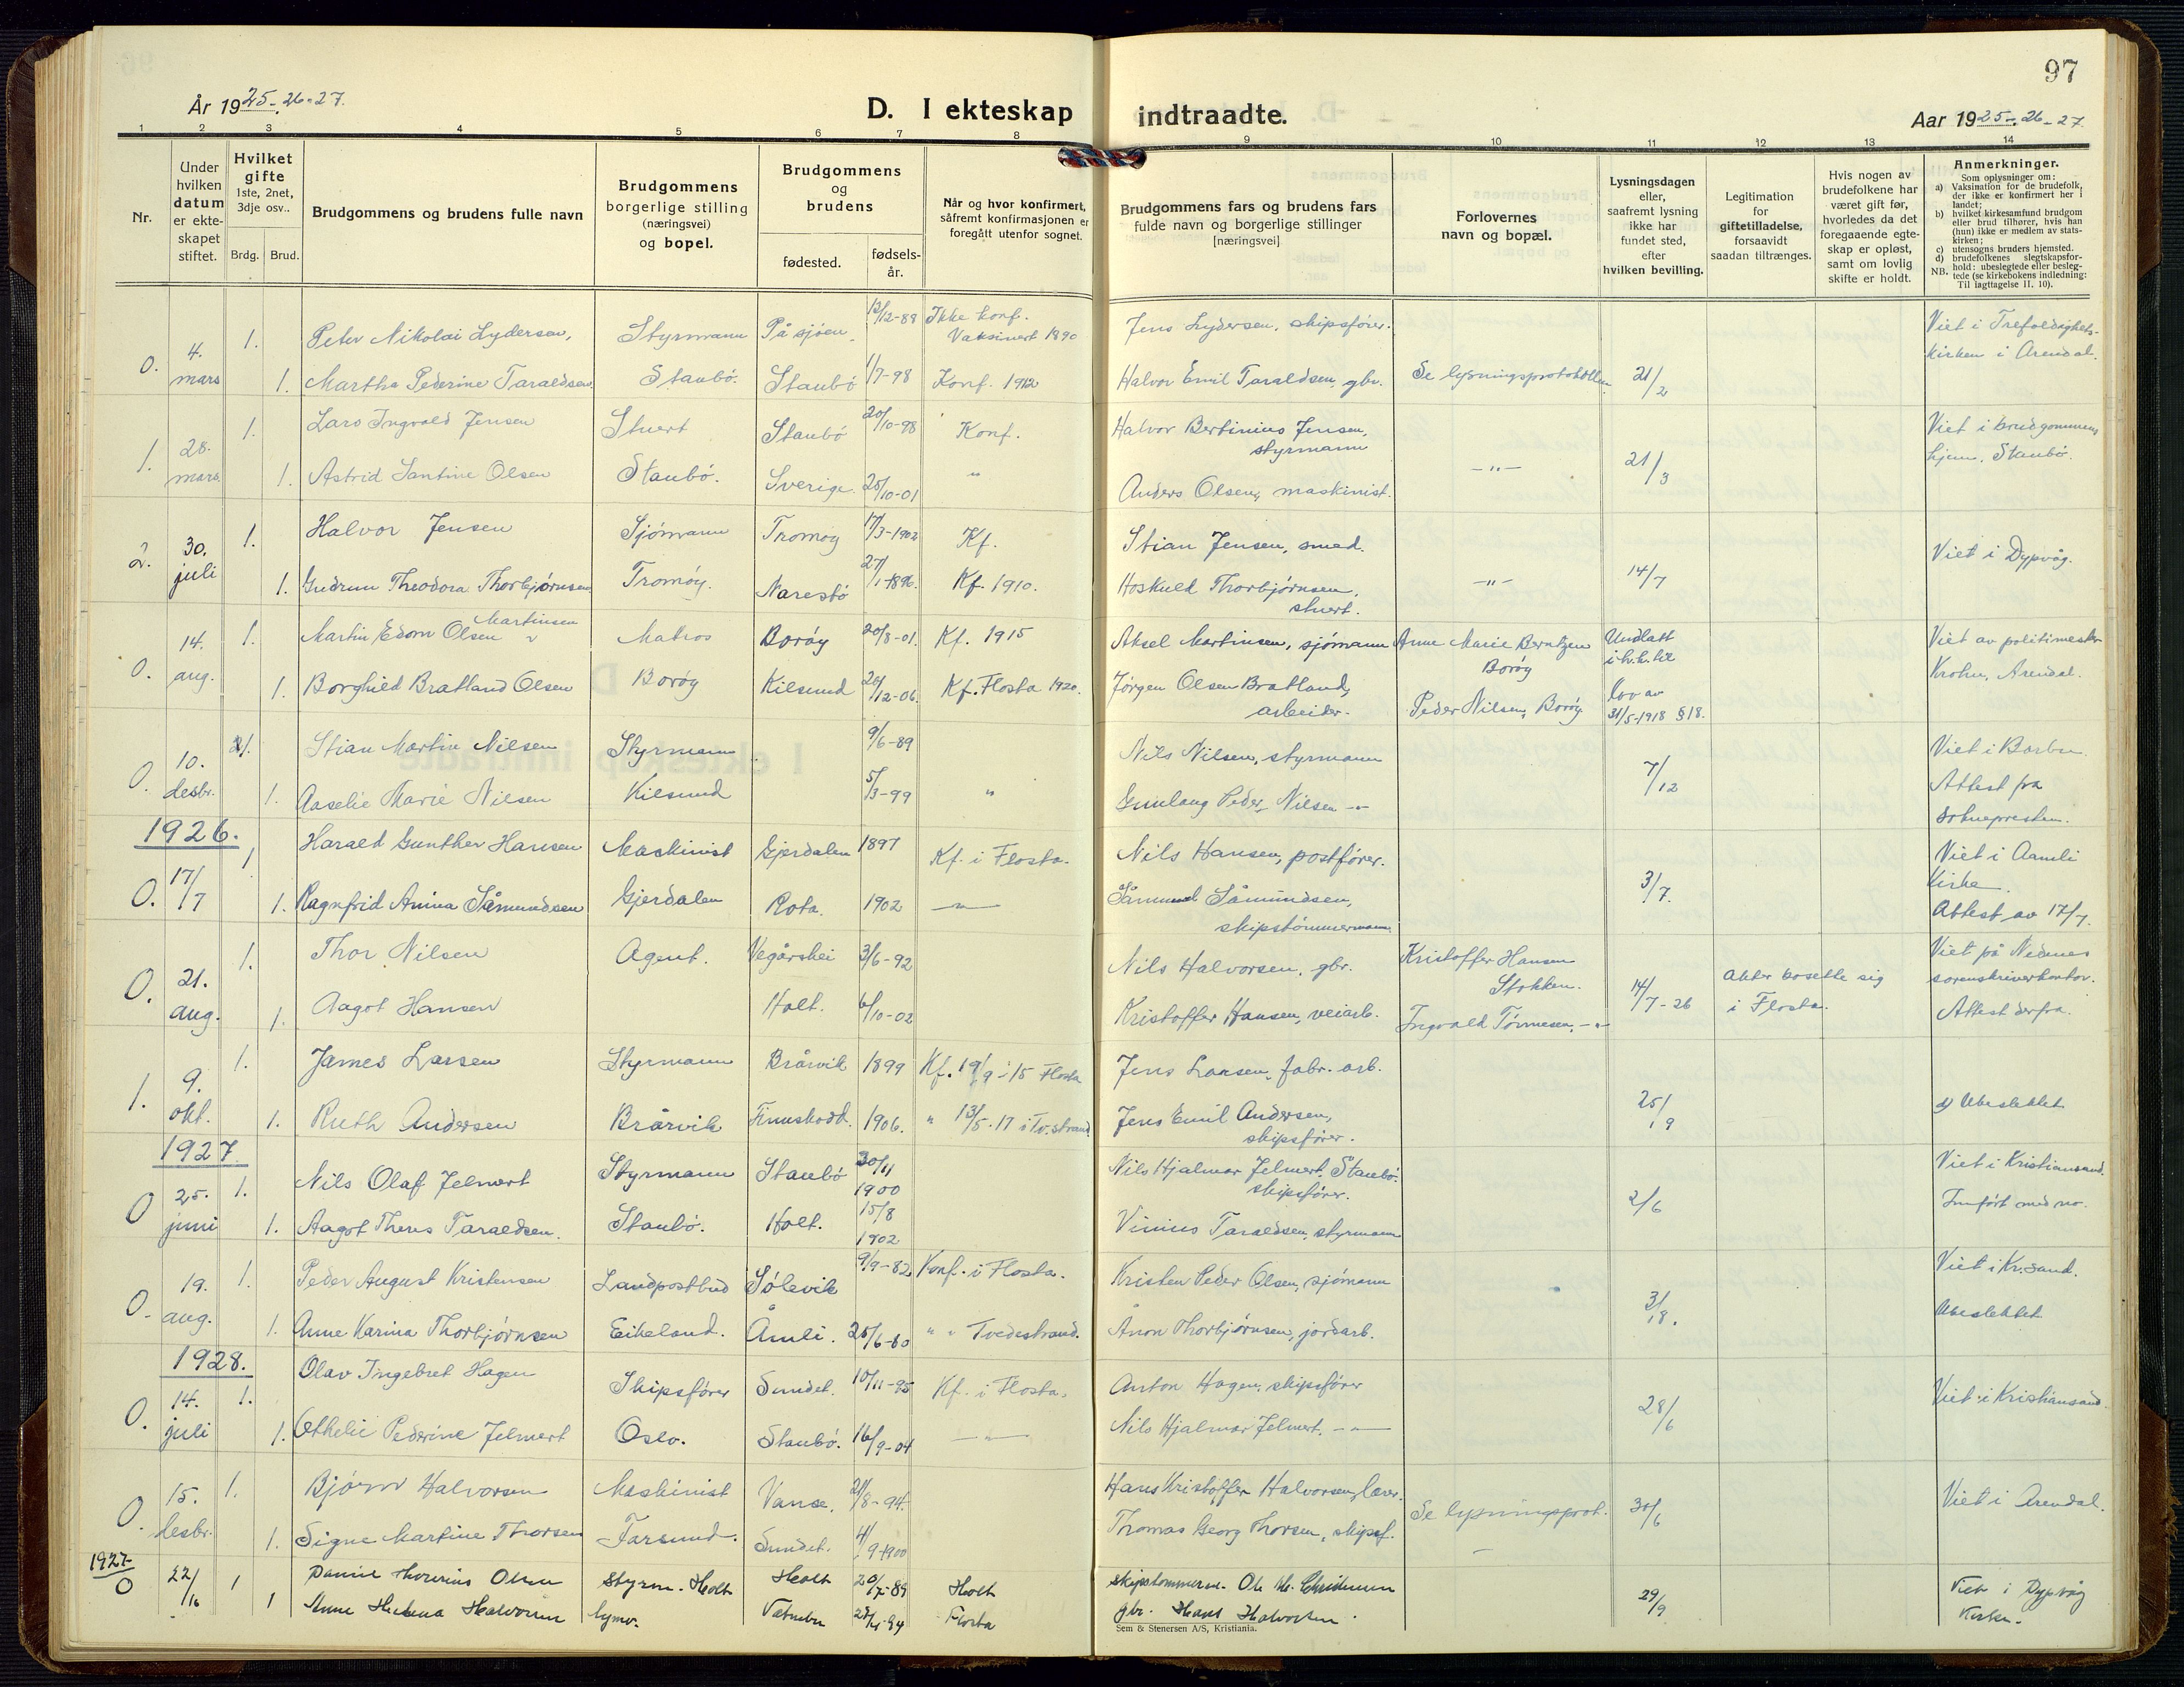 97
År 1925-26-27.
D. I ekteskap indtraadte.
Aar 1925-26-27.
1 2 3 4 5 6 7 8 9 10 11 12 13 14
Nr.
Under hvilken datum er ekte-skapet stiftet.
Hvilket gifte 1ste, 2net, 3dje osv..
Brdg. Brud.
Brudgommens og brudens fulle navn
Brudgommens borgerlige stilling (næringsvei) og bopel.
Brudgommens og brudens
fødested. fødsels-år.
Når og hvor konfirmert, såfremt konfirmasjonen er foregått utenfor sognet.
Brudgommens fars og brudens fars fulde navn og borgerlige stillinger [næringsvei]
Forlovernes navn og bopæl.
Lysningsdagen eller, saafremt lysning ikke har fundet sted, efter hvilken bevilling.
Legitimation for giftetilladelse, forsaavidt saadan tiltrænges.
Hvis nogen av brudefolkene har været gift før, hvorledes da det foregaaende egte-skap er opløst, samt om lovlig skifte er holdt.
Anmerkninger.
Som oplysninger om:
a) Vaksination for de brudefolk, der ikke er konfirmert her i landet;
b) hvilket kirkesamfund brudgom eller brud tilhører, hvis han (hun) ikke er medlem av stats-kirken;
c) utensogns bruders hjemsted.
d) brudefolkenes slegtskapsfor-hold: ubeslegtede eller besleg-tede (se kirkebokens indledning:
NB. Til iagttagelse II, 10).
0. 4. mars 1. Peter Nikolai Lydersen, Styrmann På sjøen. 12/12-89 Ikke konf. Vaksinert 1890 Jens Lydersen, skipsfører. Viet i Trefoldighets-kirken i Arendal.
1. Martha Pederine Taraldsen Staubö. Staubö 1/7-98 Konf. 1912 Halvor Emil Taraldsen, gbr. Se lysningsprotokollen 21/2
1. 28. mars 1. Lars Ingvald Jensen Stuert Staubö 20/10-98 Konf. Halvor Bertinius Jensen, styrmann Viet i brudgommens hjem, Staubö.
1. Astrid Santine Olsen Staubö. Sverige 25/10-01 " Anders Olsen, maskinist. -"- 21/3
2. 30. juli 1. Halvor Jensen Sjømann Tromøy 17/3-1902 Kf. Stian Jensen, smed. Viet i Dypvåg.
1. Gudrun Theodora Thorbjørnsen Tromøy. Narestö 27/1-1896. Kf. 1910. Hoskuld Thorbjørnsen, stuert. -"- 14/7
0. 14. aug. 1. Martin Edom Olsen Martinsen Matros Borøy 20/8-01. Kf. 1915 Aksel Martinsen, sjømann Anne Marie Berntzen Borøy Undlatt i h.h. til Viet av politimester Krohn, Arendal.
1. Borghild Bratland Olsen Borøy Kilsund 20/12-06. Kf. Flosta 1920. Jørgen Olsen Bratland, arbeider. Peder Nilsen, Borøy lov av 31/5-1918 §18.
0. 10. desbr. 1. Stian Martin Nilsen Styrmann 9/6-89 Nils Nilsen, styrmann 7/12 Viet i Barbu.
1. Aaselie Marie Nilsen Kilsund 5/3-99 " Gunlaug Peder Nilsen -"- Attest fra soknepresten.
1926.
0. 17/7 1 Harald Gunther Hansen Maskinist Gjerdalen 1897 Kf. i Flosta. Nils Hansen, postfører. 3/7. Viet i Aamli Kirke.
1. Ragnfrid Anina Såmundsen Gjerdalen Rota. 1902 -"- Såmund Såmundsen, skipstømmermann. Attest av 17/7.
0. 21. aug. 1. Thor Nilsen Agent. Vegårshei 3/6-92 Nils Halvorsen, gbr. Kristoffer Hansen Stokken. 14/7-26 Akter bosette sig i Flosta. Viet på Nedenes sorenskriverkontor.
1. Aagot Hansen Holt. 6/10-02 Kristoffer Hansen, veiarb. Ingvald Tønnesen, -"- Attest derfra.
1. 9. okt. 1. James Larsen Styrmann Bråvik 1899 Kf. 19/9-15 Flosta Jens Larsen, fabr. arb. 25/9
1. Ruth Andersen Bråvik 1906. " 13/5-17 i Tv.strand Jens Emil Andersen, skipsfører. d) Ubeslektet
1927.
0 25. juni 1. Nils Olaf Jelmert Styrmann Staubö 30/11 1900 Nils Hjalmar Jelmert, Staubö. skipsfører. 2/6 Viet i Kristiansand.
1. Aagot Taraldsen. Staubö. Holt. 15/8 1902 Vinius Taraldsen, styrmann
0. 19. aug. 1. Peder August Kristensen Landpostbud Sølevik 9/9-82 Konf. i Flosta. Kristen Peder Olsen, sjømann 3/8. Viet i Kr.sand.
1. Anne Karina Thorbjørnsen Eikeland. Åmli. 25/6-80 " " Tvedestrand. Ånon Thorbjørnsen, jordarb. Ubeslektet
1928.
0. 14. juli 1. Olav Ingebret Hagen Skipsfører Sundet. 10/11-95 Kf. i Flosta. Anton Hagen, skipsfører 28/6 Viet i Kristiansand.
1. Othelie Pederine Jelmert Oslo. Staubö. 16/9-04 -"- Nils Hjalmar Jelmert. -"-
0. 15. desbr. 1. Bjørn Halvorsen Maskinist Vanse. 21/8-94. Hans Kristoffer Halvorsen, lærer. Se lysningsprot. 30/6 Viet i Arendal.
1. Signe Martine Thorsen Farsund. Sundet. 4/9-1900 Thomas Georg Thorsen, skipsf.
1927
0 22/16 1 Olsen Styrm. Holt Holt 20/7-89 Holt skipstømmerm. 29/9 Viet i Dypvåg Kirke.
1 Anne Helena Halvorsen Flosta gbr. Hans Halvorsen.
Sem & Stenersen A/S, Kristiania.